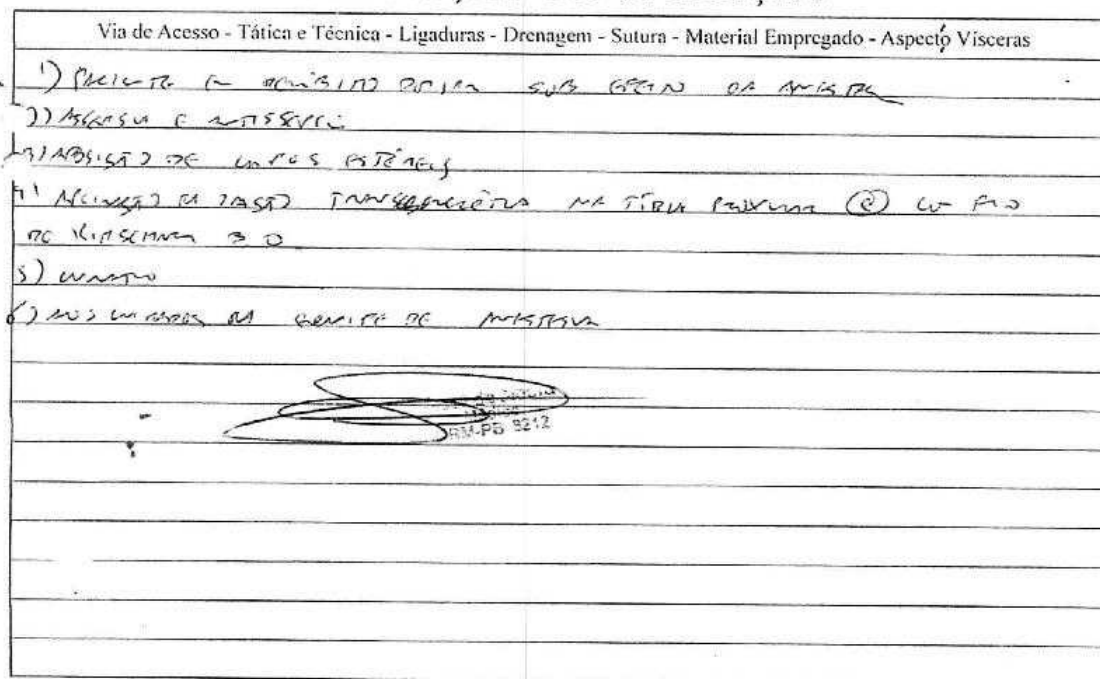 Via de Acesso - Tática e Técnica - Ligaduras - Drenagem - Sutura - Material Empregado - Aspecto Vísceras
1) PACIENTE EM DECÚBITO DORSAL SUB EFEITO DA ANESTESIA
2) ASSEPSIA E ANTISSEPSIA
3) APOSIÇÃO DE CAMPOS ESTÉREIS
4) TRAÇÃO TRANSESQUELÉTICA NA TÍBIA PROXIMAL COM FIO
DE KIRSCHNER 3 0
5) CURATIVO
6) AOS CUIDADOS DA EQUIPE DE ANESTESIA
RM-PB 9212